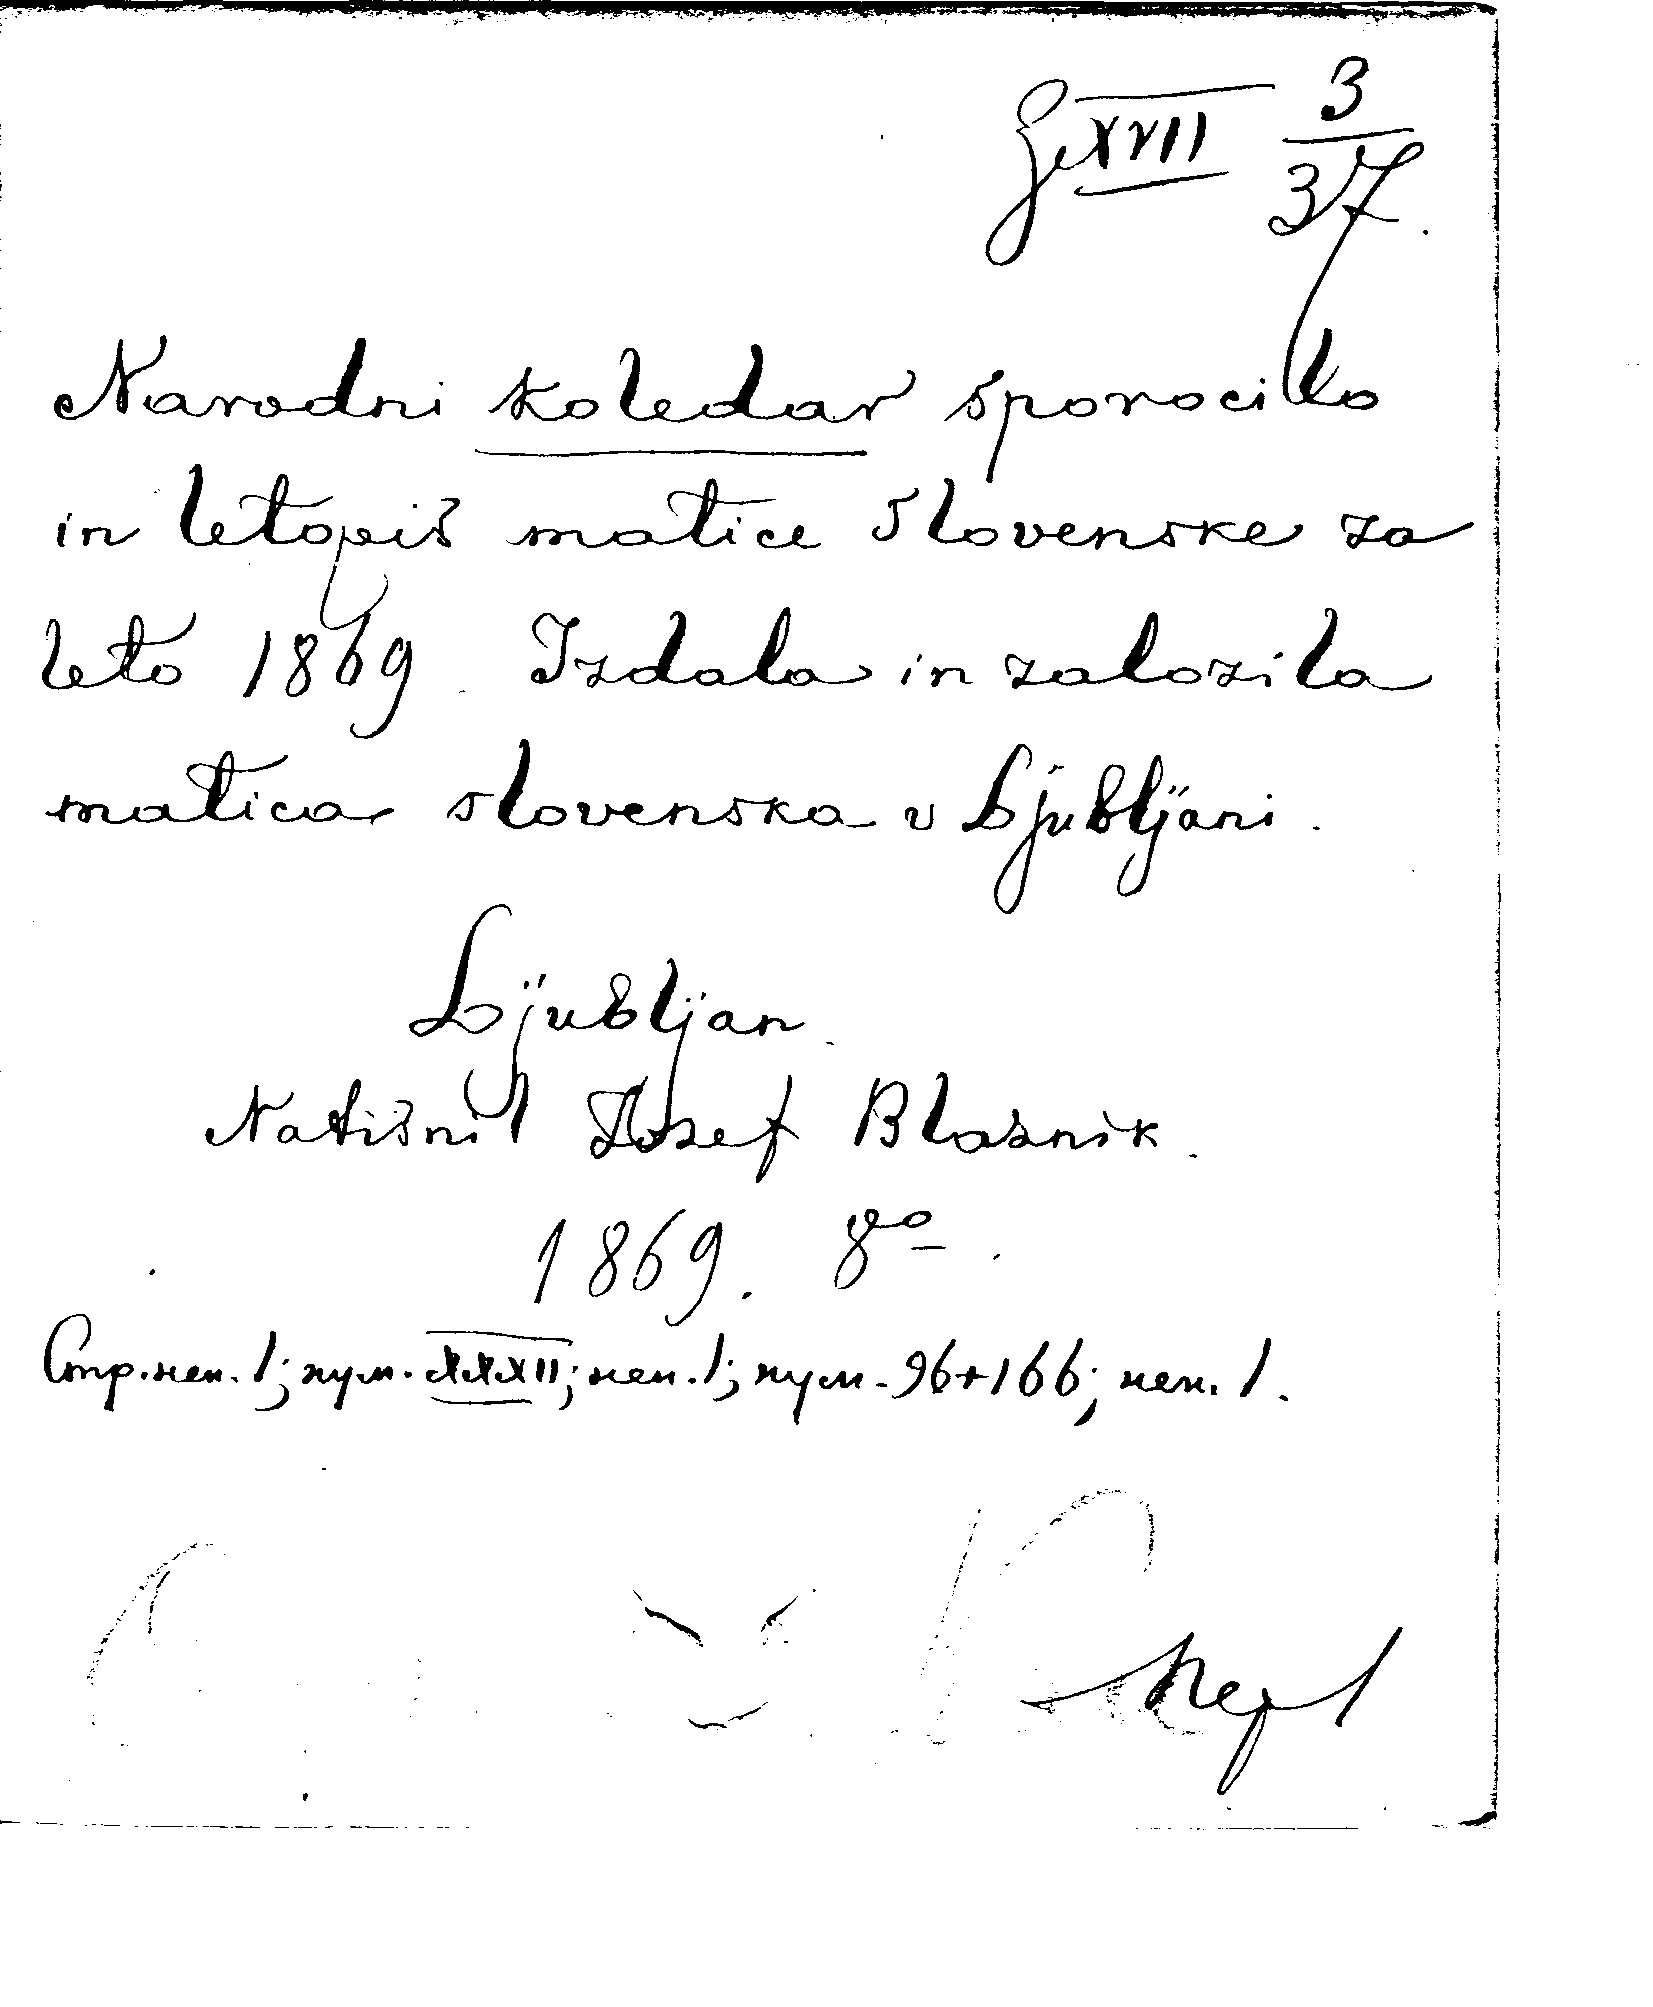 XVII 3/37.
Narodni koledar sporocilo
in letopis matice slovenske za
leto 1869 Izdala in zalozila
matica slovenska v Ljubljani.
Ljubljan.
Natisnil Jozef Blasnik.
1869. 8°.
Стр. нен. 1; нум. XXXII; нен. 1; нум. 96+166; нен. 1.